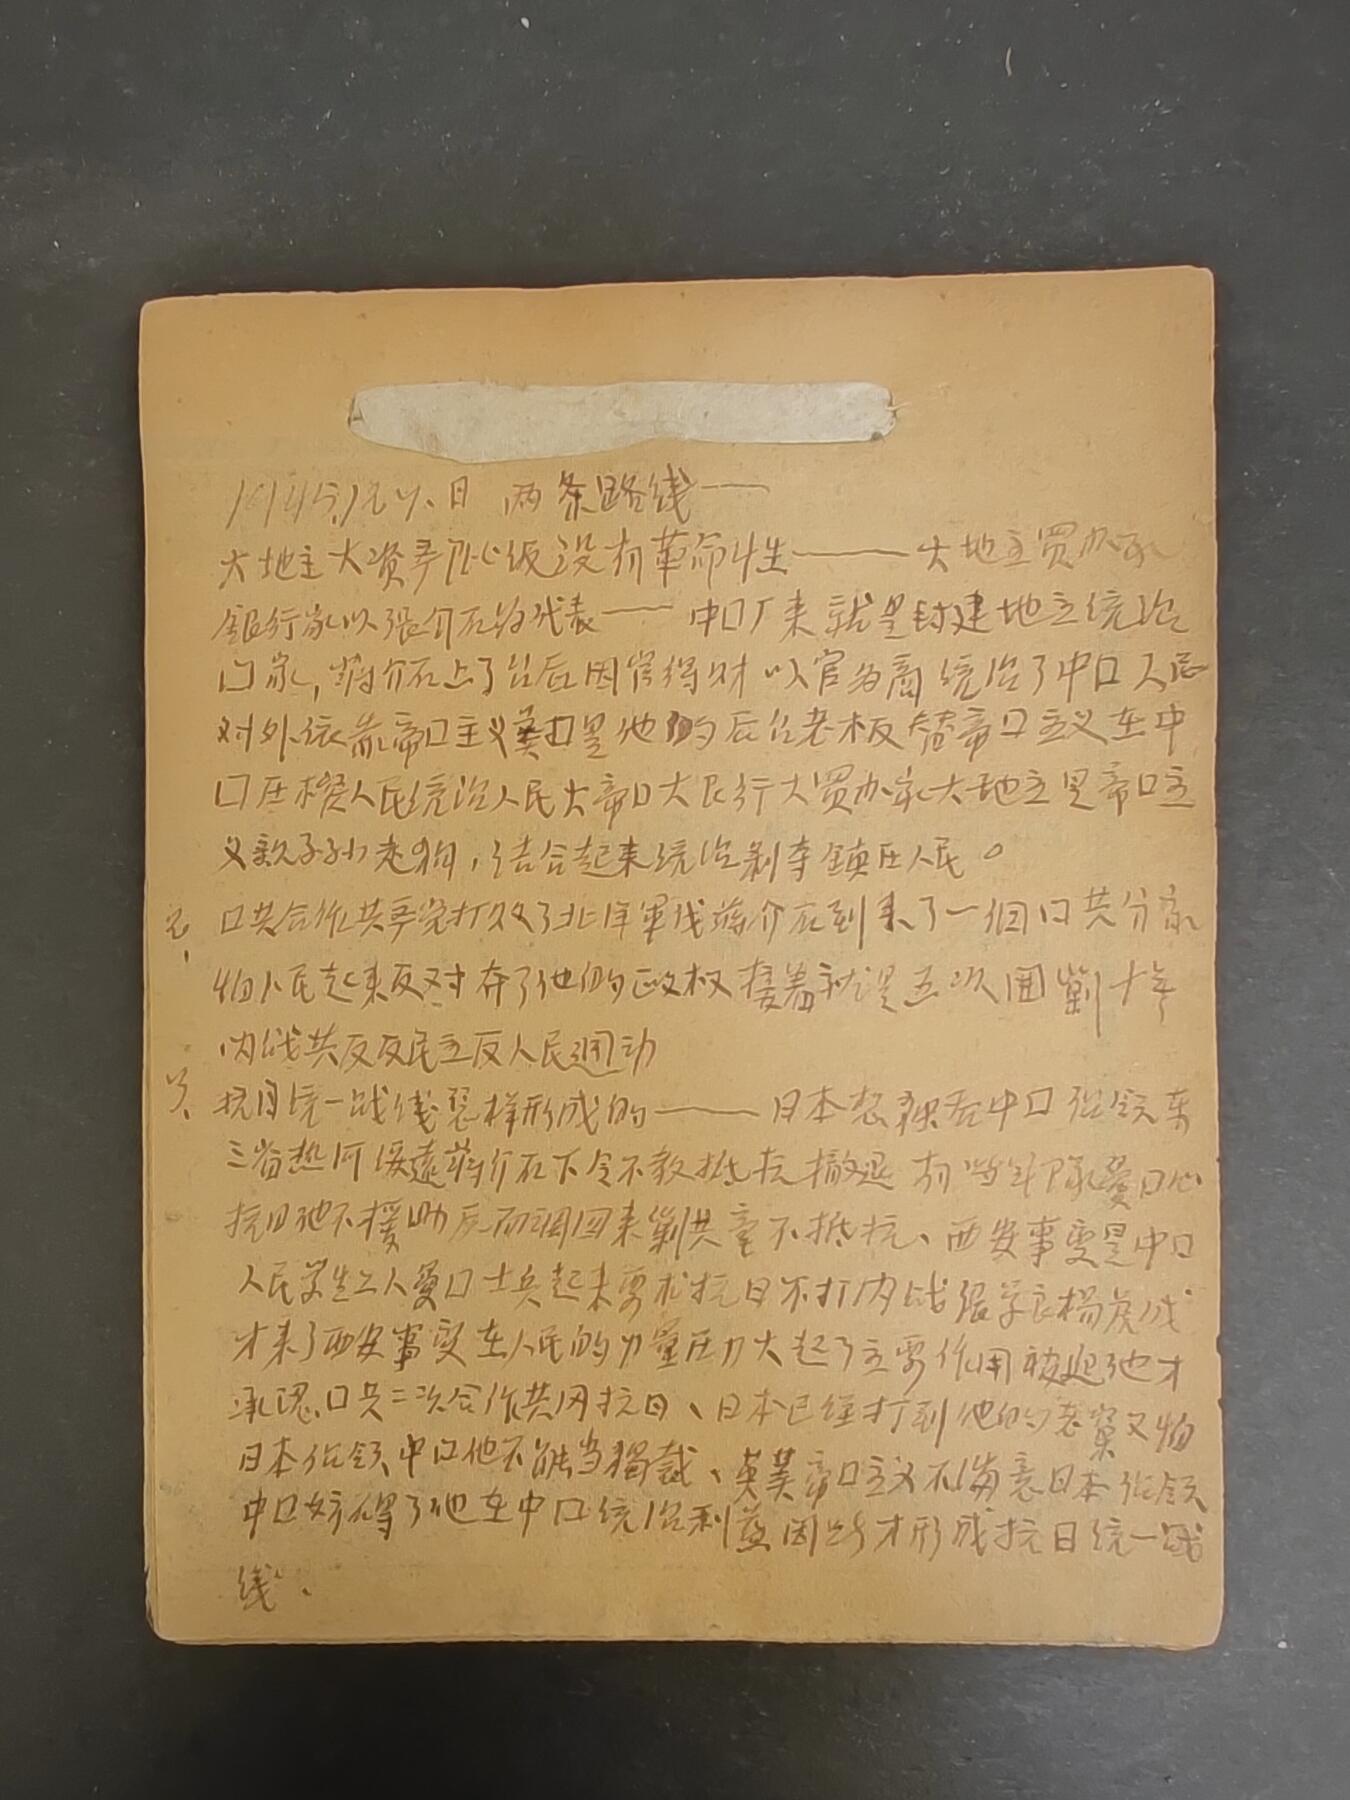 1945.12.7、日 两条路线——
大地主大资产阶级没有革命性——大地主买办家
银行家以张介石为代表——中口厂来就是封建地主统治
口家，蒋介石上了台后因官得财以官为商统治了中口人民
对外依靠帝口主义英口是他的后台老板替帝口主义在中
口压榨人民统治人民大帝口大民行大买办家大地主是帝口主
义亲子孙走狗，结合起来统治剥夺镇压人民。
口共合作共产党打败了北洋军伐蒋介石到来了一個口共分家
怕人民起来反对夺了他的政权接着就是五次围剿十年
内战共反反民主反人民运动
抗日统一战线怎样形成的——日本想独吞中口佔领东
三省热河绥远蒋介石下令不敦抵抗撤退有些部队爱口心
抗日他不援助反而调回来剿共毫不抵抗、西安事变是中口
人民学生工人爱口士兵起来要求抗日不打内战张学良杨虎成
才来了西安事变在人民的力量压力大起了主要作用被迫他才
承认口共二次合作共同抗日、日本已经打到他的老窠又怕
日本佔领中口他不能当獨裁、英美帝口主义不满意日本佔领
中口妨碍了他在中口统治利益因此才形成抗日统一战
线、